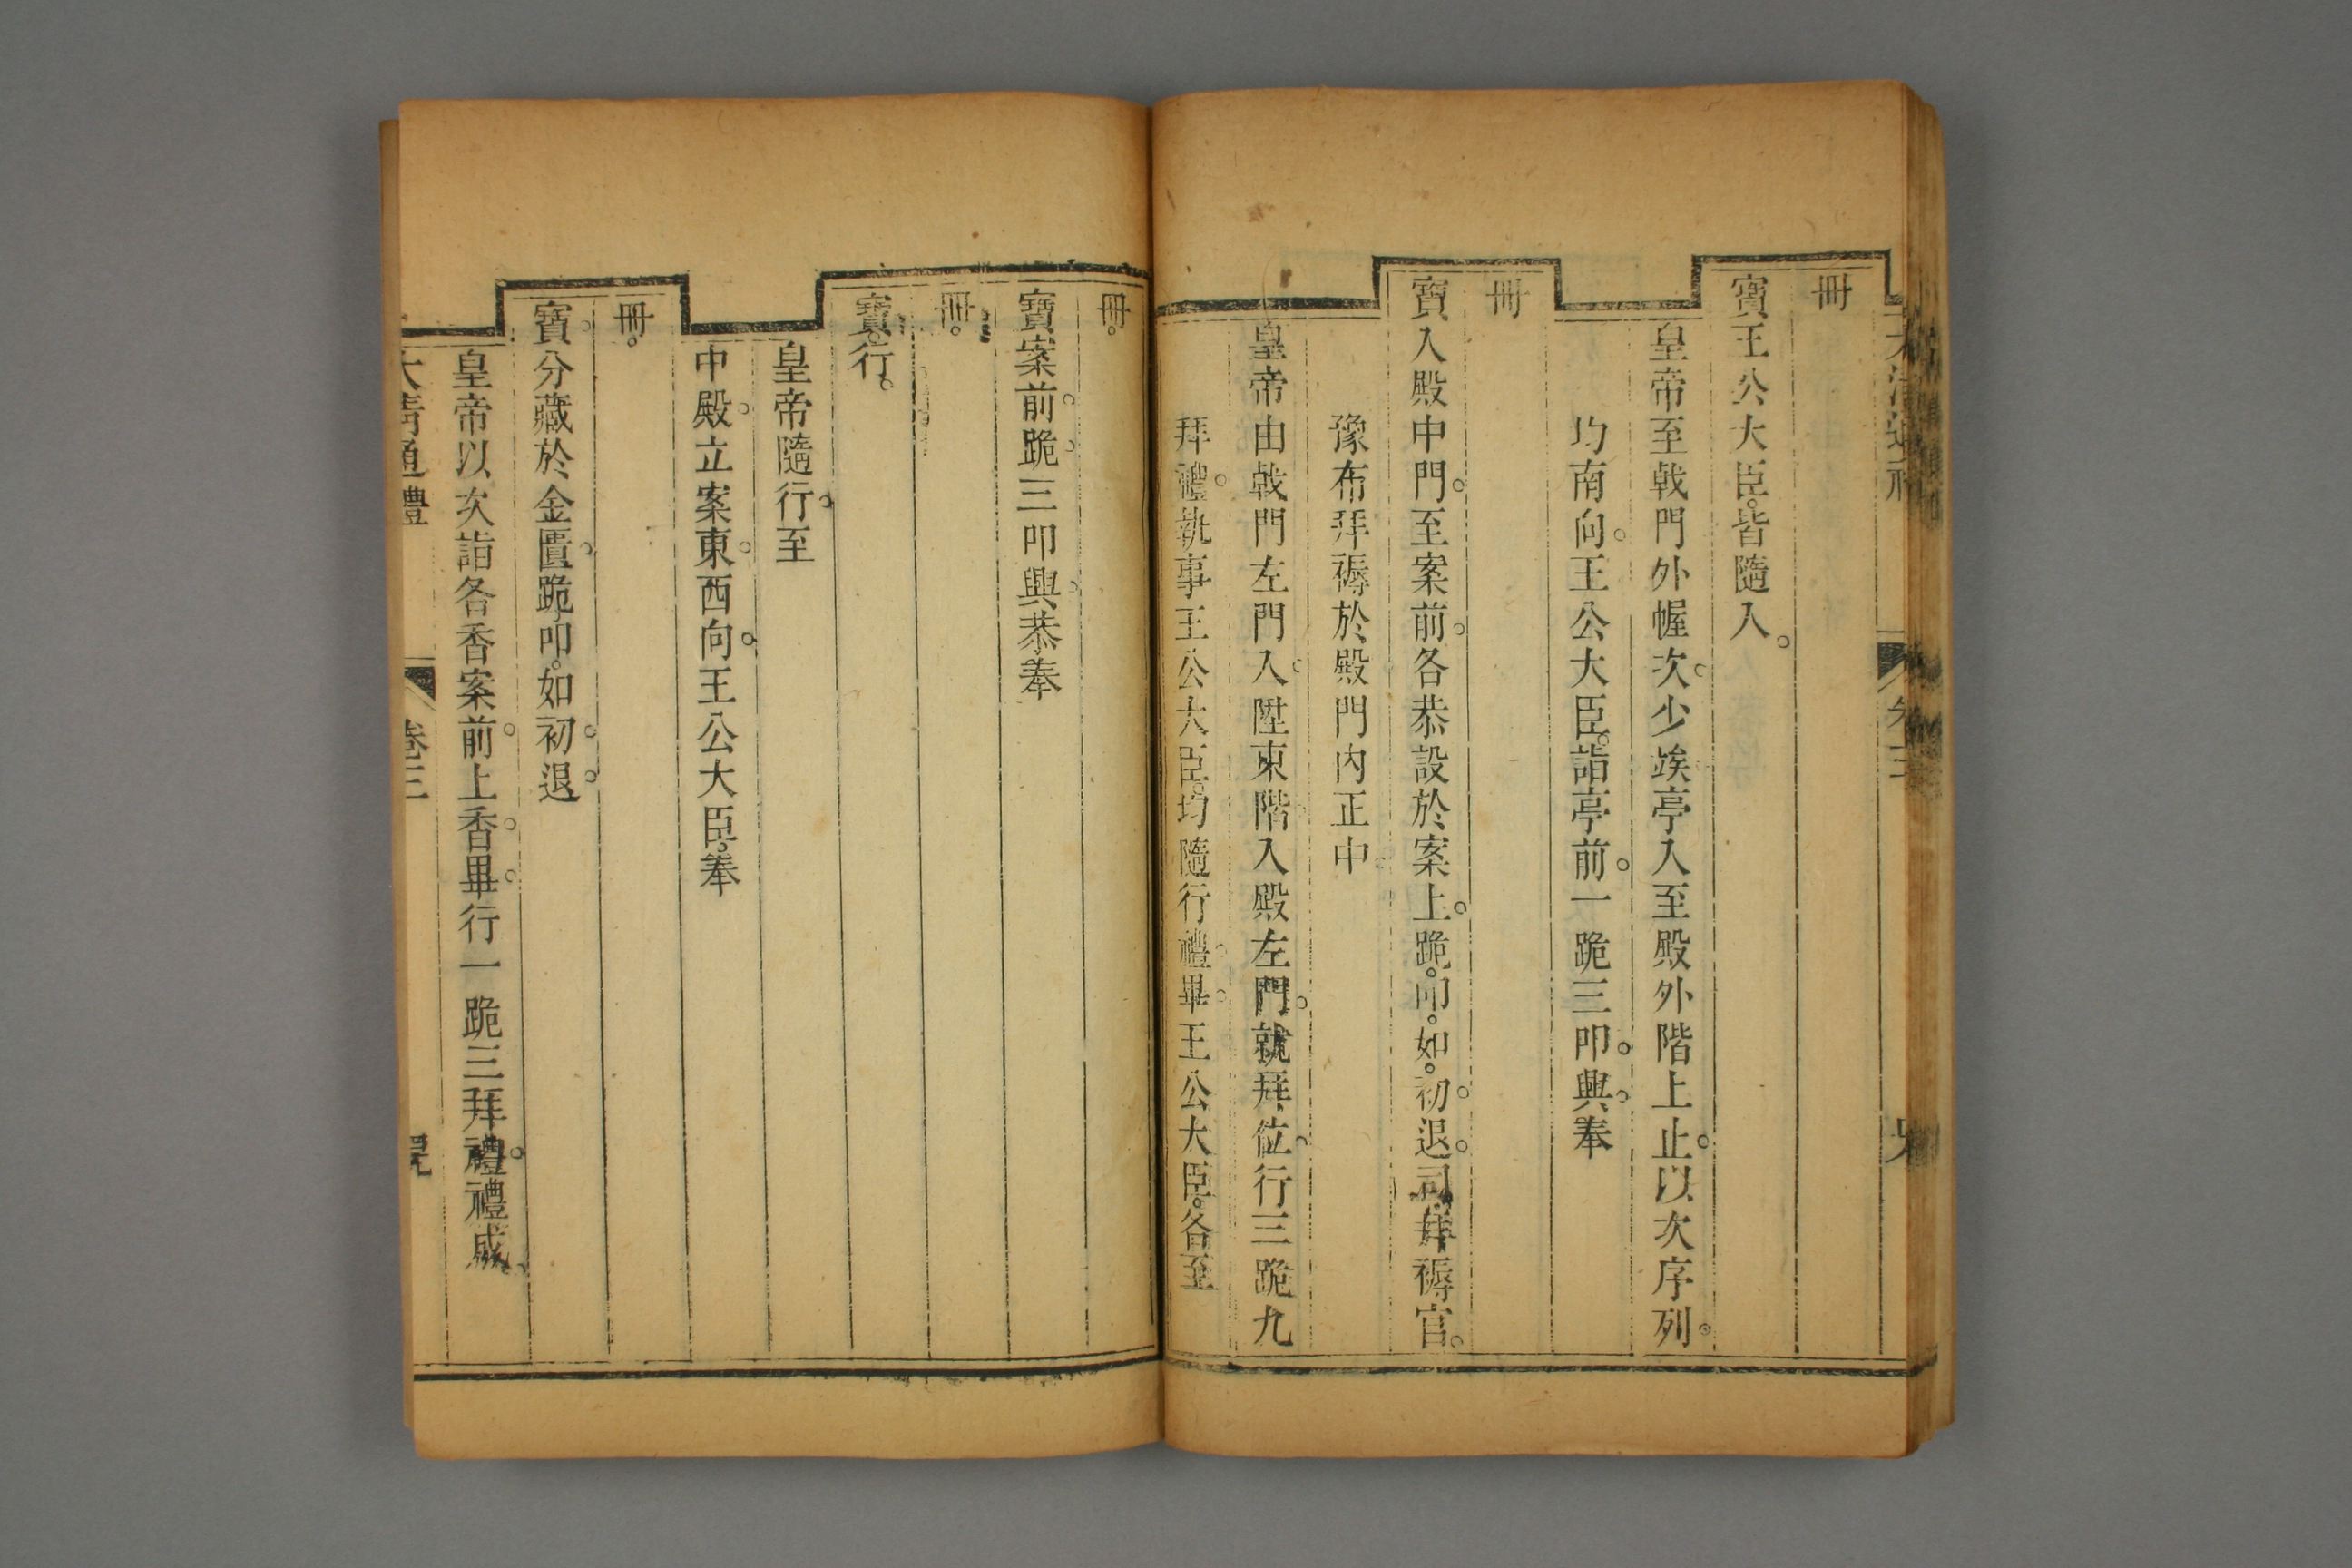 冊
寶王公大臣皆隨入
皇帝至戟門外幄次少竢亭入至殿外階上止以次序列
均南向王公大臣詣亭前一跪三叩興奉
冊
寶入殿中門至案前各恭設於案上跪叩如初退司拜褥官
豫布拜褥於殿門內正中
皇帝由戟門左門入陞東階入殿左門就拜位行三跪九
拜禮執事王公大臣均隨行禮畢王公大臣各至
冊
寶案前跪三叩興恭奉
冊
寶行
皇帝隨行至
中殿立案東西向王公大臣奉
冊
寶分藏於金匱跪叩如初退
皇帝以次詣各香案前上香畢行一跪三拜禮禮成
大清通禮 卷三